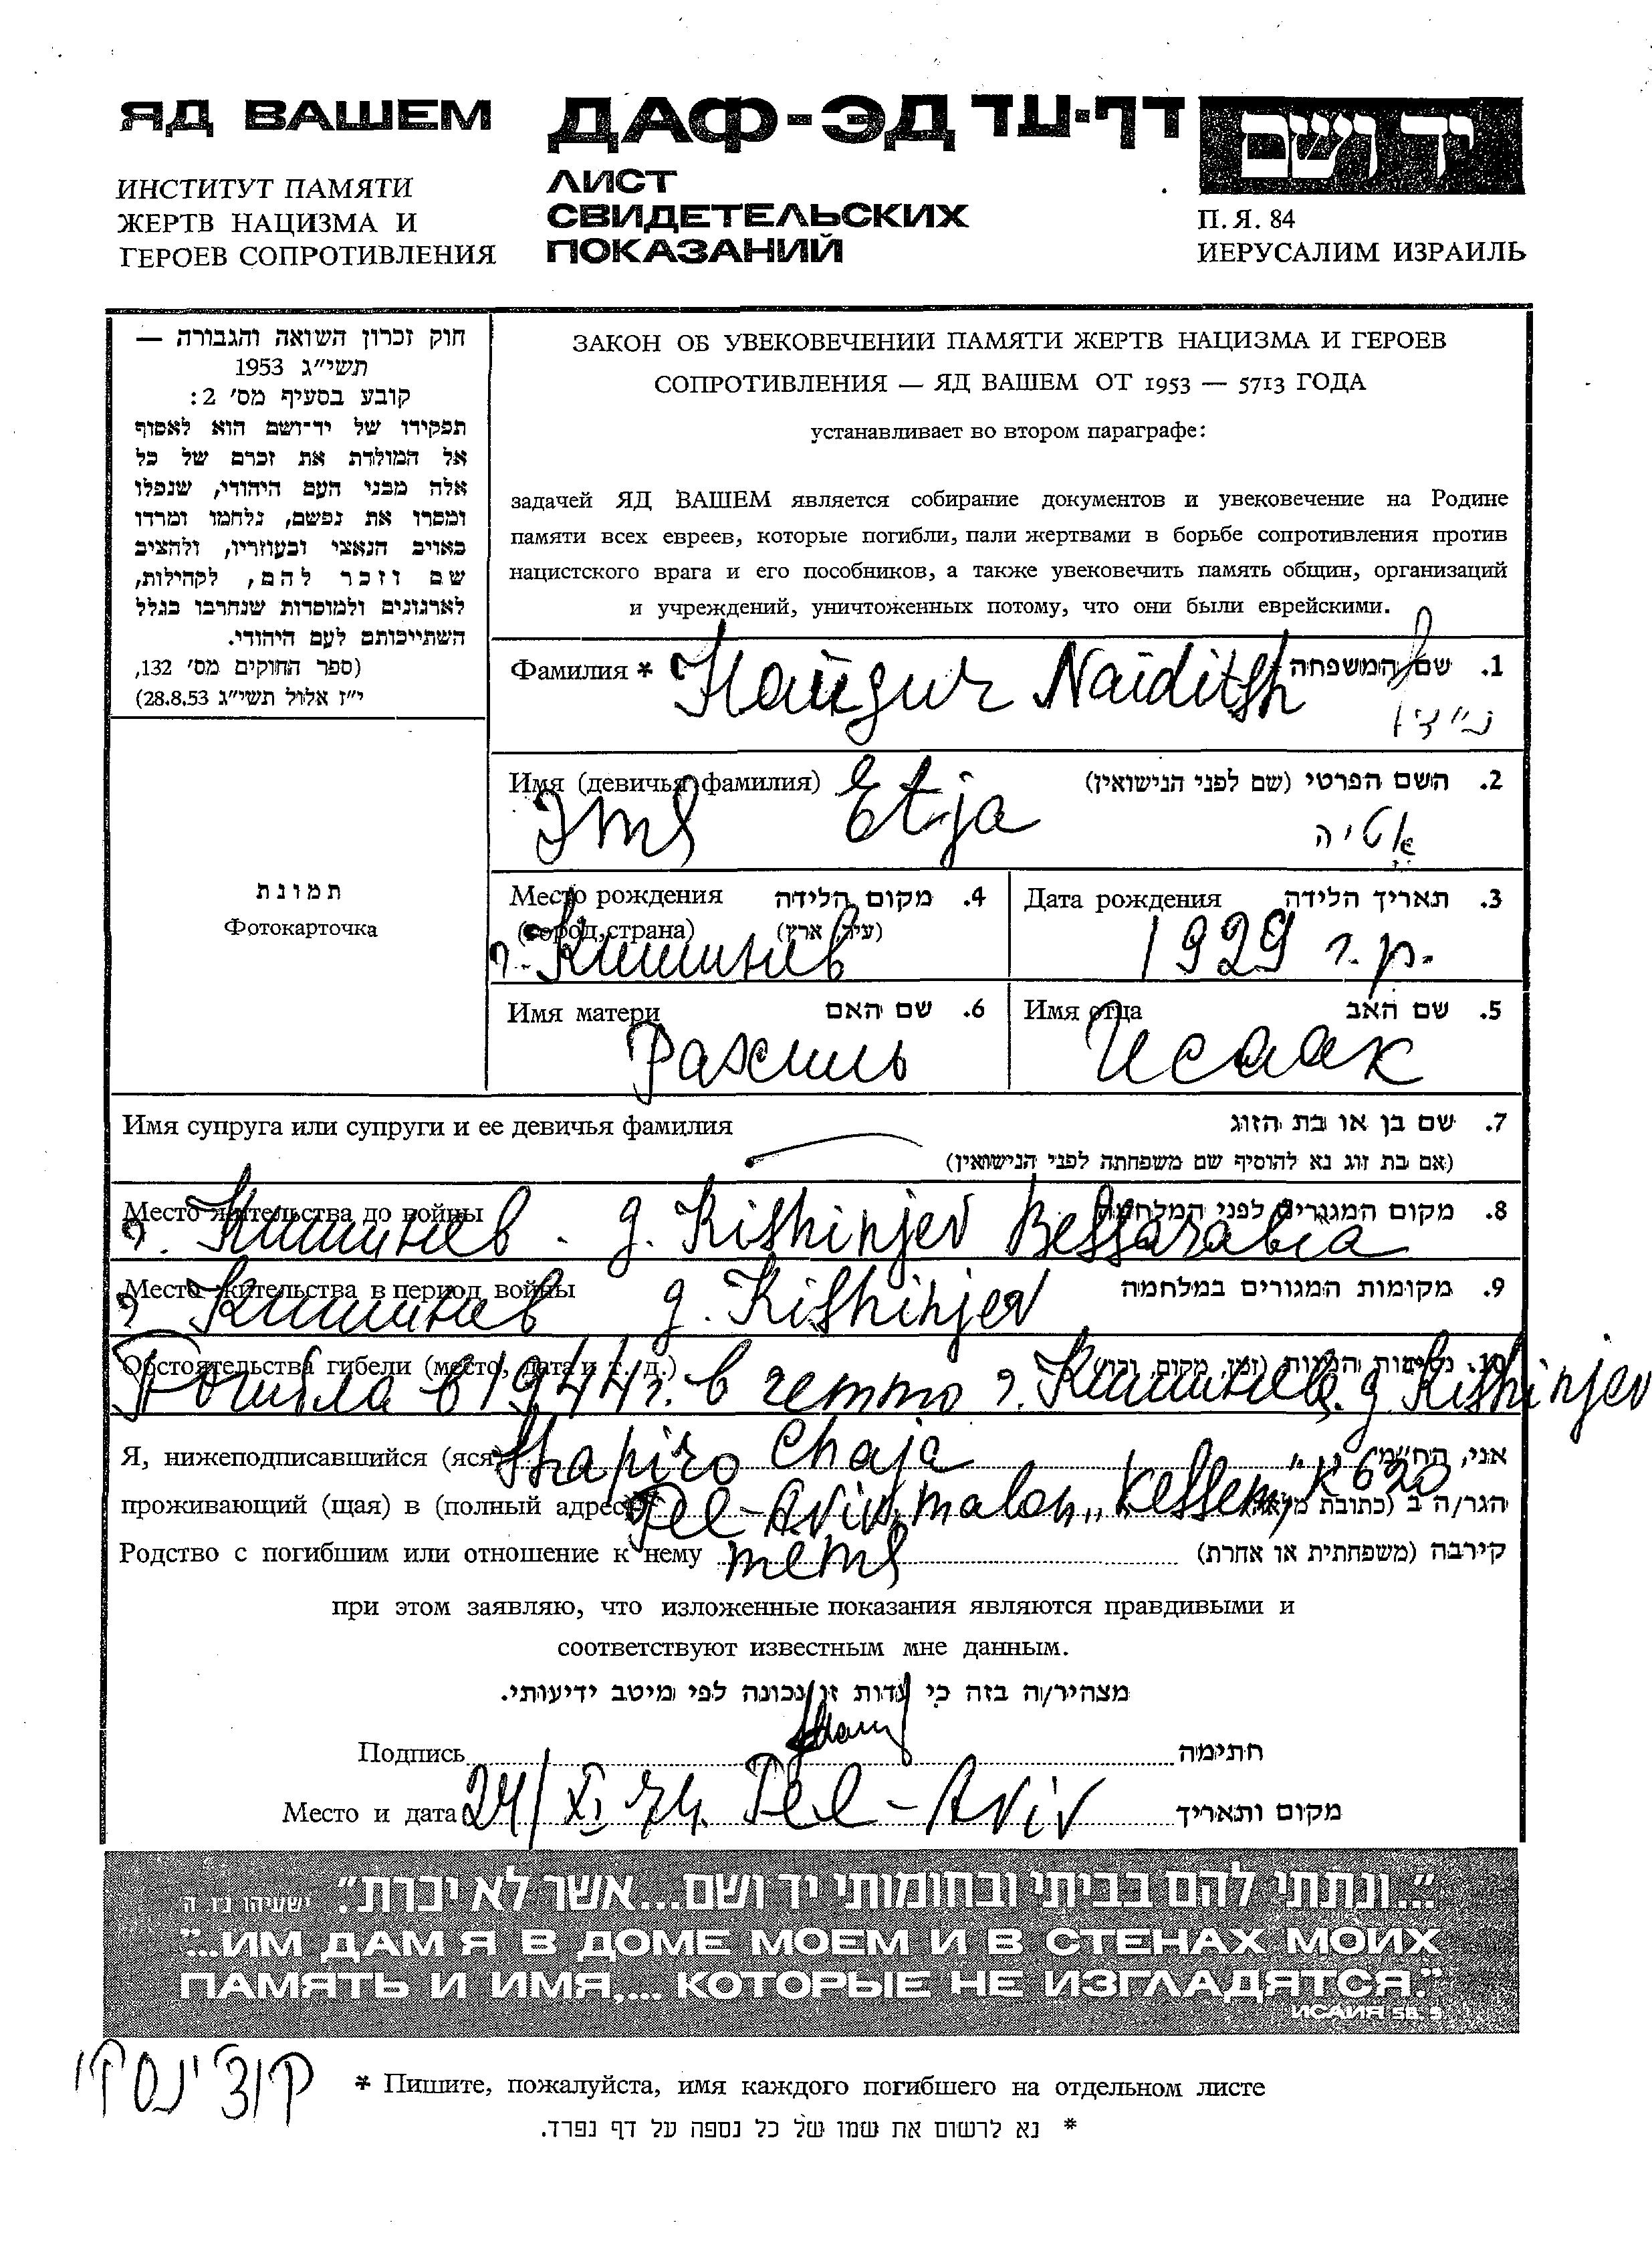 ЯД ВАШЕМ
ИНСТИТУТ ПАМЯТИ
ЖЕРТВ НАЦИЗМА И
ГЕРОЕВ СОПРОТИВЛЕНИЯ
ДАФ-ЭД דף-עד
ЛИСТ
СВИДЕТЕЛЬСКИХ
ПОКАЗАНИЙ
יד ושם
П. Я. 84
ИЕРУСАЛИМ ИЗРАИЛЬ
חוק זכרון השואה והגבורה —
תשי״ג 1953
קובע בסעיף מס׳ 2:
תפקידו של יד־ושם הוא לאסוף
אל המולדת את זכרם של כל
אלה מבני העם היהודי, שנפלו
ומסרו את נפשם, נלחמו ומרדו
באויב הנאצי ובעוזריו, ולהציב
שם וזכר להם, לקהילות,
לארגונים ולמוסדות שנחרבו בגלל
השתייכותם לעם היהודי.
(ספר החוקים מס׳ 132,
י״ז אלול תשי״ג 28.8.53)
תמונת
Фотокарточка
ЗАКОН ОБ УВЕКОВЕЧЕНИИ ПАМЯТИ ЖЕРТВ НАЦИЗМА И ГЕРОЕВ
СОПРОТИВЛЕНИЯ — ЯД ВАШЕМ ОТ 1953 — 5713 ГОДА
устанавливает во втором параграфе:
задачей ЯД ВАШЕМ является собирание документов и увековечение на Родине
памяти всех евреев, которые погибли, пали жертвами в борьбе сопротивления против
нацистского врага и его пособников, а также увековечить память общин, организаций
и учреждений, уничтоженных потому, что они были еврейскими.
Фамилия * Найдич Naiditsh 1. שם המשפחה
Имя (девичья фамилия) Etja 2. השם הפרטי (שם לפני הנישואין)
Этя אטיה
Место рождения 4. מקום הלידה
(город, страна) (עיר, ארץ)
г. Кишинев
Дата рождения 3. תאריך הלידה
1929 г.р.
Имя матери 6. שם האם
Рахиль
Имя отца 5. שם האב
Исаак
Имя супруга или супруги и ее девичья фамилия 7. שם בן או בת הזוג
(אם בת זוג נא להוסיף שם משפחתה לפני הנישואין)
Место жительства до войны 8. מקום המגורים לפני המלחמה
г. Кишинев. g. Kishinjev Bessarabia
Место жительства в период войны 9. מקומות המגורים במלחמה
г Кишинев g. Kishinjev
Обстоятельства гибели (место, дата и т. д.) 10. נסיבות המות (זמן, מקום, וכו׳)
Погибла в 1944 г. в гетто г. Кишинев. g. Kishinjev
Я, нижеподписавшийся (яся) Shapiro Chaja אני, הח״מ
проживающий (щая) в (полный адрес) Tel-Aviv, malon "Kessem" K 620 הגר/ה ב (כתובת מלאה)
Родство с погибшим или отношение к нему тетя קירבה (משפחתית או אחרת)
при этом заявляю, что изложенные показания являются правдивыми и
соответствуют известным мне данным.
מצהיר/ה בזה כי עדות זו נכונה לפי מיטב ידיעותי.
Подпись חתימה
Место и дата 24/XI 74. Tel-Aviv מקום ותאריך
"...ונתתי להם בביתי ובחומותי יד ושם...אשר לא יכרת". ישעיהו נו ה
"...ИМ ДАМ Я В ДОМЕ МОЕМ И В СТЕНАХ МОИХ
ПАМЯТЬ И ИМЯ,... КОТОРЫЕ НЕ ИЗГЛАДЯТСЯ."
ИСАИЯ 56. 5
* Пишите, пожалуйста, имя каждого погибшего на отдельном листе
* נא לרשום את שמו של כל נספה על דף נפרד.